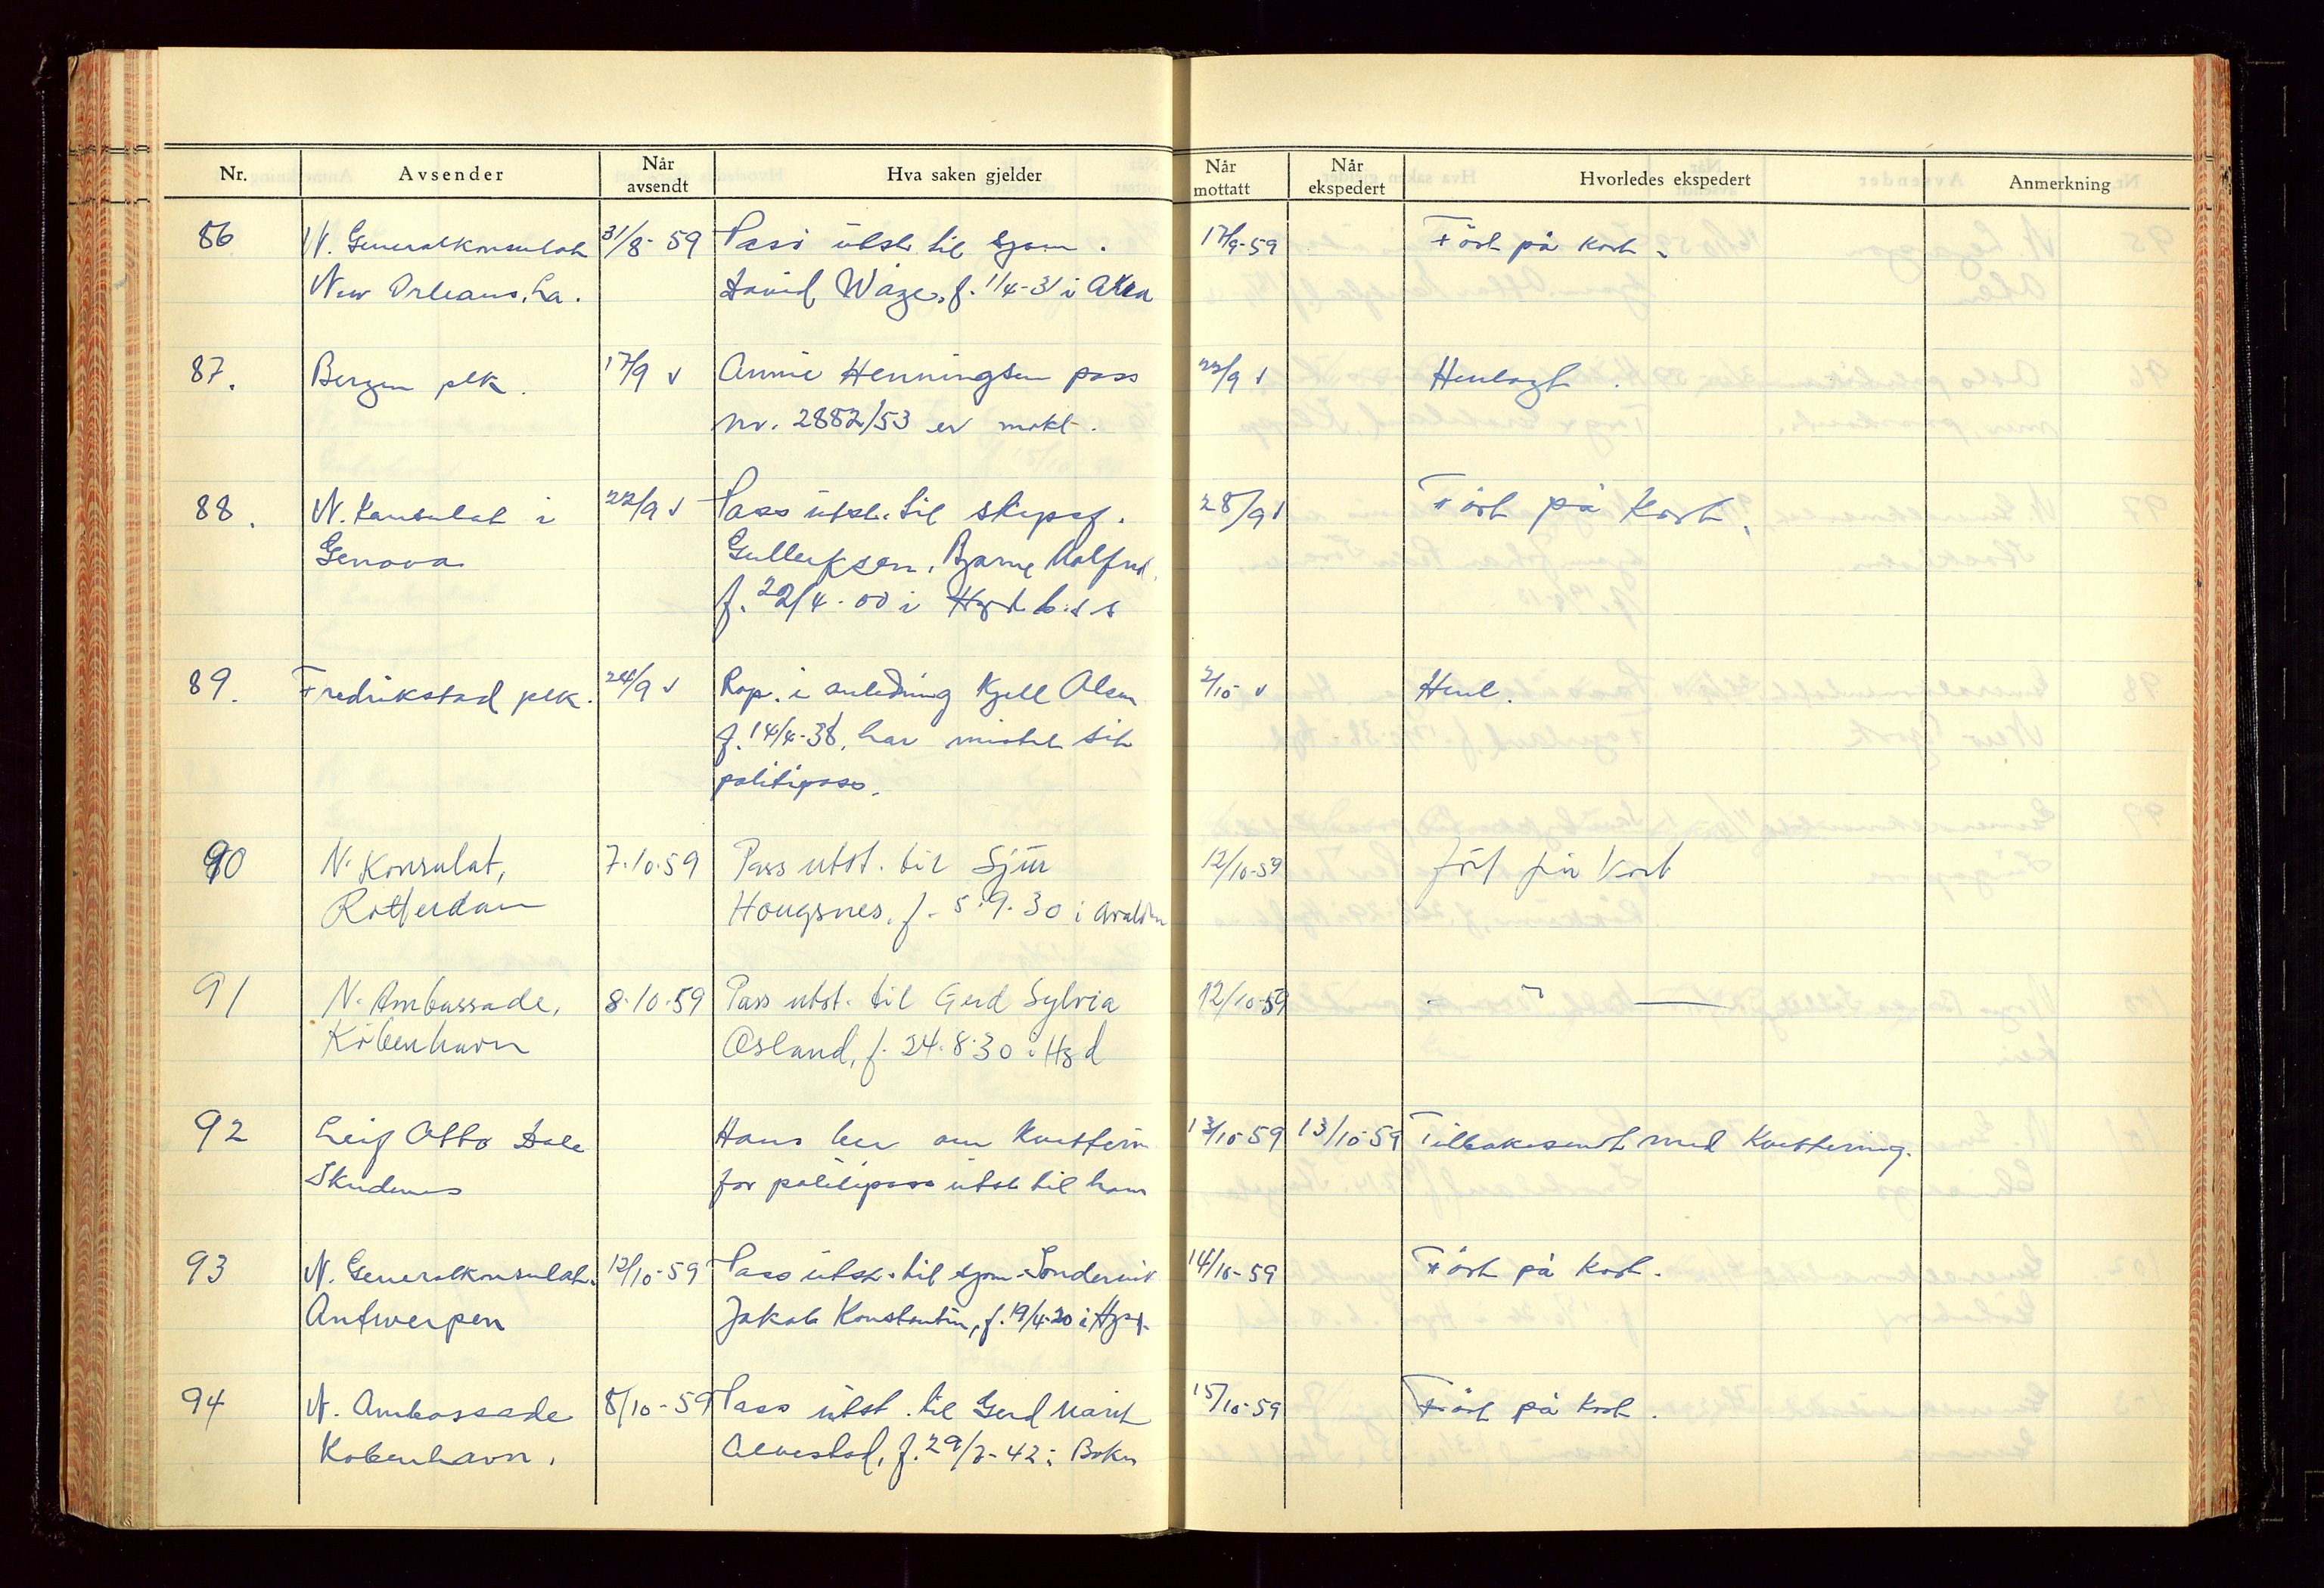 Nr. Avsender Når avsendt Hva saken gjelder Når mottatt Når ekspedert Hvorledes ekspedert Anmerkning
86 N. Generalkonsulat 31/8-59 Pass utst. til sjøm. 17/9-59 Ført på kort.
New Orleans, La. David Våge, f. 1/4-31 i
87. Bergen plk. 17/9 Annie Henningsen pass 22/9 Henlagt.
nr. 2882/53 er mokt.
88. N. Konsulat i 22/9 Pass utst. til skipsf. 28/9 Ført på kort.
Genova Gulleiksen, Bjarne
f. 22/4-00 i
89. Fredrikstad plk. 24/9 Rap. i anledning Kjell Olsen 2/10 Henl.
f. 14/4-38, har mistet sit
politipass.
90 N. Konsulat, 7.10.59 Pass utst. til Sjur 12/10-59 Ført på kort
Rotterdam Hougsnes, f. 5.9.30 i
91 N. Ambassade, 8.10.59 Pass utst. til Gerd Sylvia 12/10-59 - " -
København Osland, f. 24.8.30 i Hgd
92 Leif Otto Dale Hans om kvittering 13/10-59 13/10-59 Tilbakesendt med kvittering.
Skudenes for politipass utst til ham
93 N. Generalkonsulat. 12/10-59 Pass utst. til sjøm. 14/10-59 Ført på kort.
Antwerpen Jakob Konstantin, f. 19/4-20 i
94 N. Ambassade 8/10-59 Pass utst. til Gerd Marit 15/10-59 Ført på kort.
København. Alvestad, f. 29/3-42 i Bokn